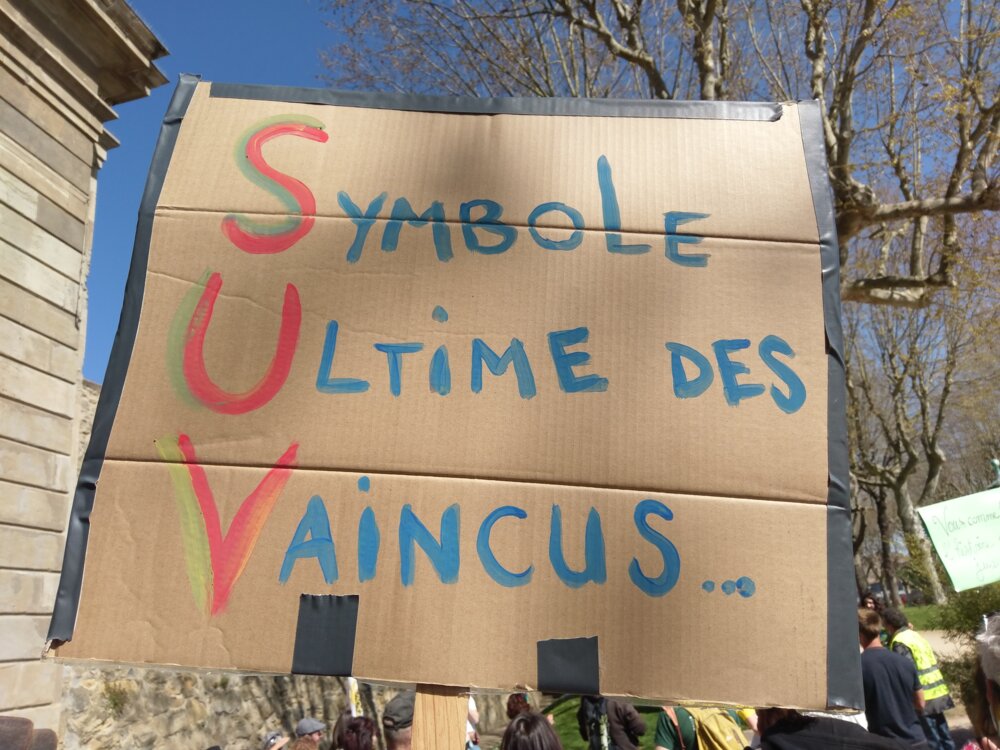 SYMBOLE
ULTiME DES
VAiNCUS...
Vous comme